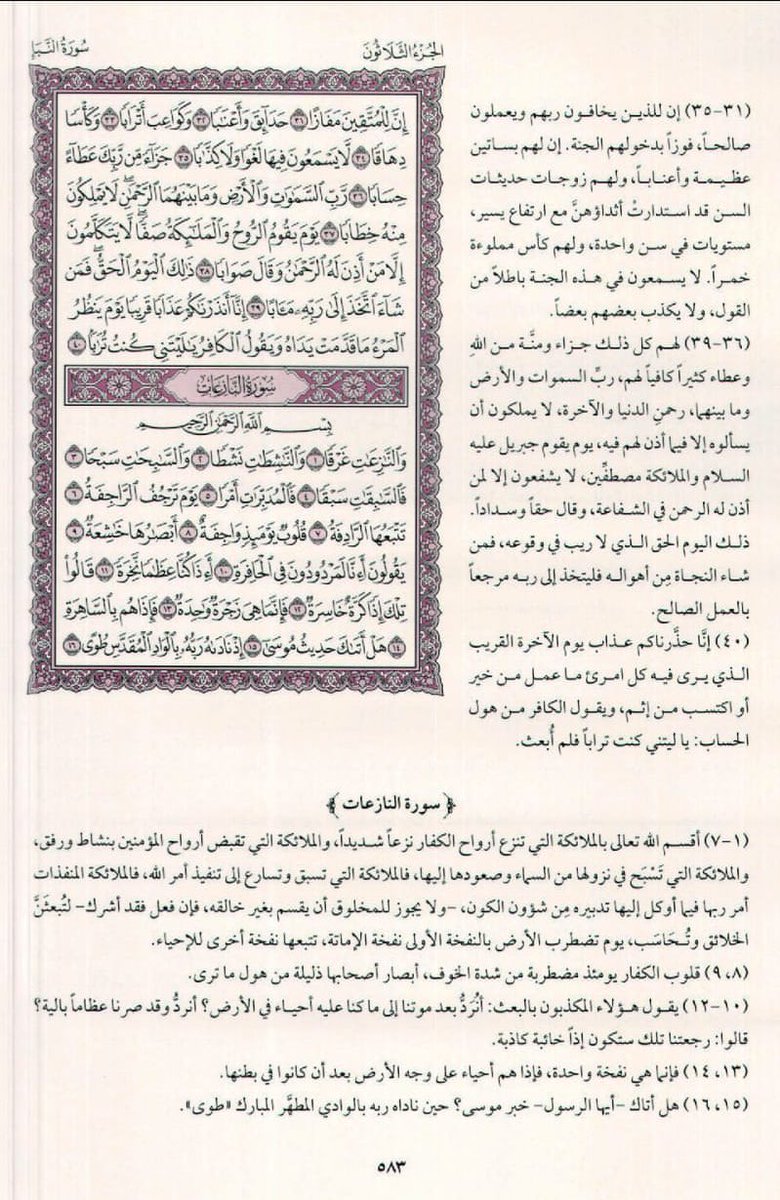 الجُزءُ الثَّلَاثُونَ
سُورَةُ النَّبَإِ
إِنَّ لِلْمُتَّقِينَ مَفَازًا ٣١ حَدَآئِقَ وَأَعْنَٰبًا ٣٢ وَكَوَاعِبَ أَتْرَابًا ٣٣ وَكَأْسًا
دِهَاقًا ٣٤ لَّا يَسْمَعُونَ فِيهَا لَغْوًا وَلَا كِذَّٰبًا ٣٥ جَزَآءً مِّن رَّبِّكَ عَطَآءً
حِسَابًا ٣٦ رَّبِّ ٱلسَّمَٰوَٰتِ وَٱلْأَرْضِ وَمَا بَيْنَهُمَا ٱلرَّحْمَٰنِ ۖ لَا يَمْلِكُونَ
مِنْهُ خِطَابًا ٣٧ يَوْمَ يَقُومُ ٱلرُّوحُ وَٱلْمَلَٰٓئِكَةُ صَفًّا ۖ لَّا يَتَكَلَّمُونَ
إِلَّا مَنْ أَذِنَ لَهُ ٱلرَّحْمَٰنُ وَقَالَ صَوَابًا ٣٨ ذَٰلِكَ ٱلْيَوْمُ ٱلْحَقُّ ۖ فَمَن
شَآءَ ٱتَّخَذَ إِلَىٰ رَبِّهِۦ مَـَٔابًا ٣٩ إِنَّآ أَنذَرْنَٰكُمْ عَذَابًا قَرِيبًا يَوْمَ يَنظُرُ
ٱلْمَرْءُ مَا قَدَّمَتْ يَدَاهُ وَيَقُولُ ٱلْكَافِرُ يَٰلَيْتَنِى كُنتُ تُرَٰبًۢا ٤٠
سُورَةُ النَّازِعَاتِ
بِسْمِ ٱللَّهِ ٱلرَّحْمَٰنِ ٱلرَّحِيمِ
وَٱلنَّٰزِعَٰتِ غَرْقًا ١ وَٱلنَّٰشِطَٰتِ نَشْطًا ٢ وَٱلسَّٰبِحَٰتِ سَبْحًا ٣
فَٱلسَّٰبِقَٰتِ سَبْقًا ٤ فَٱلْمُدَبِّرَٰتِ أَمْرًا ٥ يَوْمَ تَرْجُفُ ٱلرَّاجِفَةُ ٦
تَتْبَعُهَا ٱلرَّادِفَةُ ٧ قُلُوبٌ يَوْمَئِذٍ وَاجِفَةٌ ٨ أَبْصَٰرُهَا خَٰشِعَةٌ ٩
يَقُولُونَ أَءِنَّا لَمَرْدُودُونَ فِى ٱلْحَافِرَةِ ١٠ أَءِذَا كُنَّا عِظَٰمًا نَّخِرَةً ١١ قَالُوا۟
تِلْكَ إِذًا كَرَّةٌ خَاسِرَةٌ ١٢ فَإِنَّمَا هِىَ زَجْرَةٌ وَٰحِدَةٌ ١٣ فَإِذَا هُم بِٱلسَّاهِرَةِ
١٤ هَلْ أَتَىٰكَ حَدِيثُ مُوسَىٰٓ ١٥ إِذْ نَادَىٰهُ رَبُّهُۥ بِٱلْوَادِ ٱلْمُقَدَّسِ طُوًى ١٦
(٣١-٣٥) إن للذين يخافون ربهم ويعملون
صالحاً، فوزاً بدخولهم الجنة. إن لهم بساتين
عظيمة وأعناباً، ولهم زوجات حديثات
السن قد استدارتْ أثداؤهنَّ مع ارتفاع يسير،
مستويات في سن واحدة، ولهم كأس مملوءة
خمراً. لا يسمعون في هذه الجنة باطلاً من
القول، ولا يكذب بعضهم بعضاً.
(٣٦-٣٩) لهم كل ذلك جزاء ومنَّة من اللهِ
وعطاء كثيراً كافياً لهم، ربِّ السموات والأرض
وما بينهما، رحمنِ الدنيا والآخرة، لا يملكون أن
يسألوه إلا فيما أذن لهم فيه، يوم يقوم جبريل عليه
السلام والملائكة مصطفِّين، لا يشفعون إلا لمن
أذن له الرحمن في الشفاعة، وقال حقاً وسداداً.
ذلك اليوم الحق الذي لا ريب في وقوعه، فمن
شاء النجاة مِن أهواله فليتخذ إلى ربه مرجعاً
بالعمل الصالح.
(٤٠) إنَّا حذَّرناكم عذاب يوم الآخرة القريب
الذي يرى فيه كل امرئ ما عمل من خير
أو اكتسب من إثم، ويقول الكافر من هول
الحساب: يا ليتني كنت تراباً فلم أُبعث.
﴿سورة النازعات﴾
(١-٧) أقسم الله تعالى بالملائكة التي تنزع أرواح الكفار نزعاً شديداً، والملائكة التي تقبض أرواح المؤمنين بنشاط ورفق،
والملائكة التي تَسْبَح في نزولها من السماء وصعودها إليها، فالملائكة التي تسبق وتسارع إلى تنفيذ أمر الله، فالملائكة المنفذات
أمر ربها فيما أوكل إليها تدبيره مِن شؤون الكون، -ولا يجوز للمخلوق أن يقسم بغير خالقه، فإن فعل فقد أشرك- لتُبعثَنَّ
الخلائق وتُحَاسَب، يوم تضطرب الأرض بالنفخة الأولى نفخة الإماتة، تتبعها نفخة أخرى للإحياء.
(٨، ٩) قلوب الكفار يومئذ مضطربة من شدة الخوف، أبصار أصحابها ذليلة من هول ما ترى.
(١٠-١٢) يقول هؤلاء المكذبون بالبعث: أنُرَدُّ بعد موتنا إلى ما كنا عليه أحياء في الأرض؟ أنردُّ وقد صرنا عظاماً بالية؟
قالوا: رجعتنا تلك ستكون إذاً خائبة كاذبة.
(١٣، ١٤) فإنما هي نفخة واحدة، فإذا هم أحياء على وجه الأرض بعد أن كانوا في بطنها.
(١٥، ١٦) هل أتاك -أيها الرسول- خبر موسى؟ حين ناداه ربه بالوادي المطهَّر المبارك «طوى».
٥٨٣